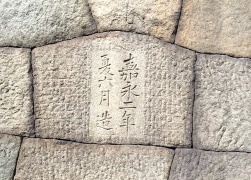 嘉永二年
六月造